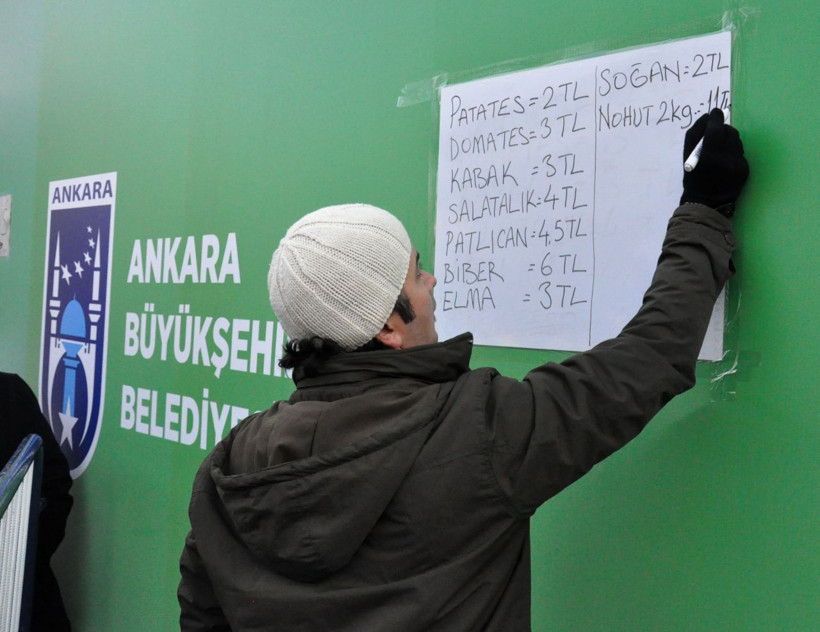 ANKARA
ANKARA
BÜYÜKŞEH
BELEDİYE
PATATES = 2 TL
DOMATES = 3 TL
KABAK = 3 TL
SALATALIK = 4 TL
PATLICAN = 4,5 TL
BİBER = 6 TL
ELMA = 3 TL
SOĞAN = 2 TL
NOHUT 2 kg = 11 TL